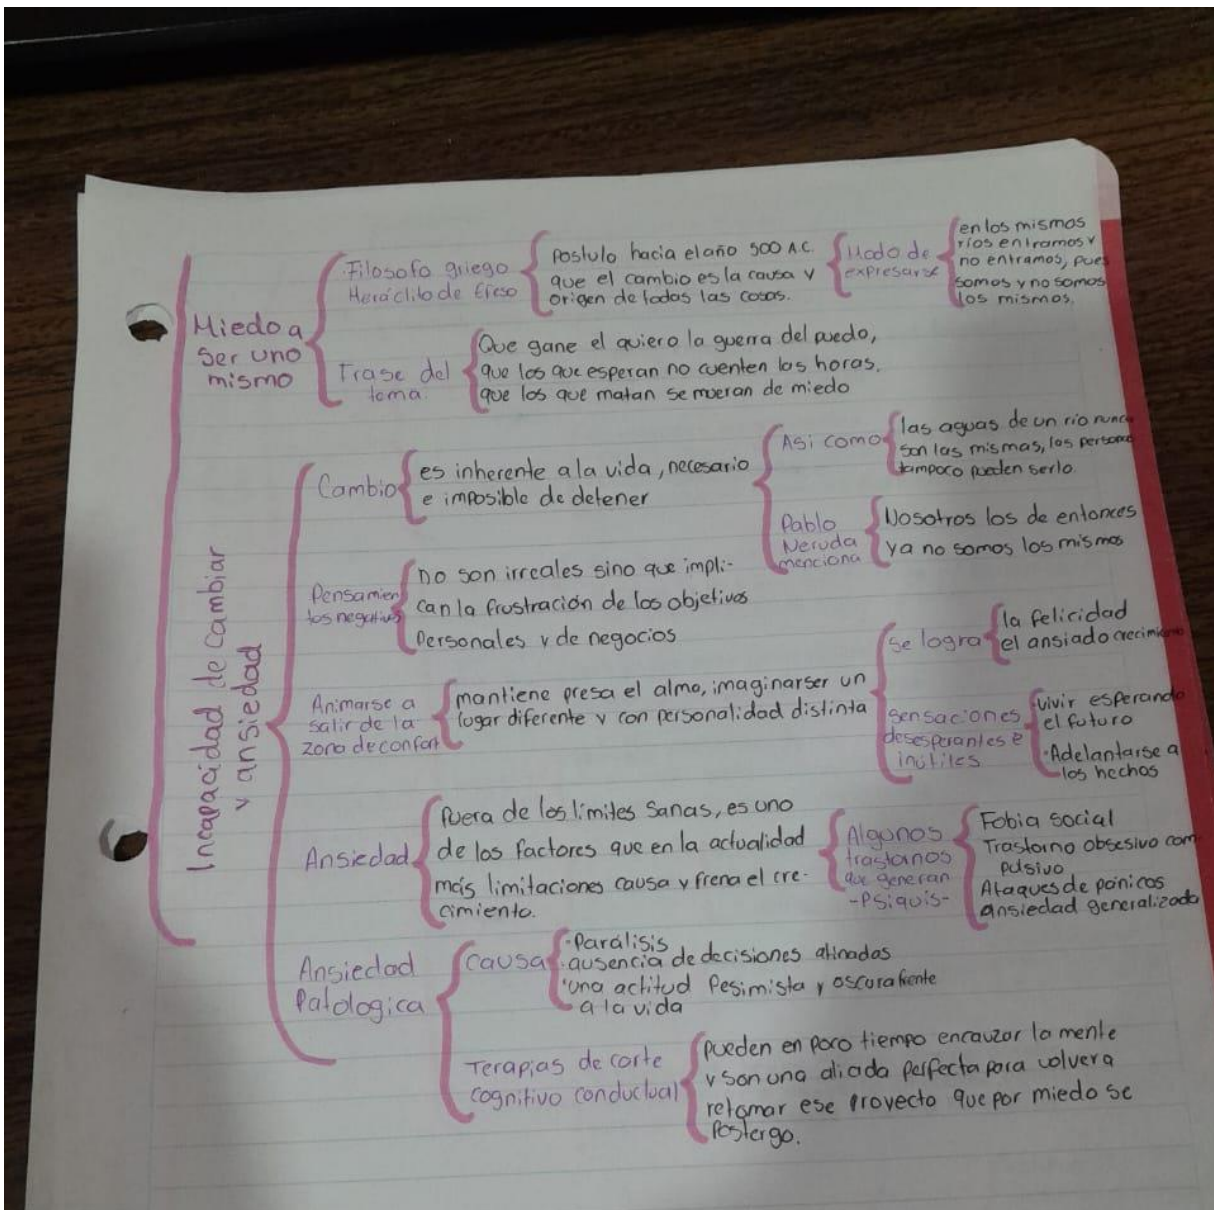 Miedo a
ser uno
mismo
Filosofo griego
Heráclito de Efeso
Postulo hacia el año 500 A.C.
que el cambio es la causa y
origen de todas las cosas.
Modo de
expresarse
en los mismos
ríos entramos y
no entramos, pues
somos y no somos
los mismos.
Frase del
tema.
Que gane el quiero la guerra del puedo,
que los que esperan no cuenten las horas.
que los que matan se mueran de miedo
Incapacidad de cambiar
y ansiedad
Cambio
es inherente a la vida, necesario
e imposible de detener
Asi como
las aguas de un rio nunca
son las mismas, las persona
tampoco pueden serlo.
Pablo
Neruda
menciona
Nosotros los de entonces
ya no somos los mismos
Pensamien
tos negativos
no son irreales sino que impli-
can la frustración de los objetivos
Personales y de negocios
Animarse a
salir de la
zona de confort
mantiene presa el alma, imaginarser un
lugar diferente y con personalidad distinta
se logra
la felicidad
el ansiado crecimiento
sensaciones
desesperantes e
inútiles
·vivir esperando
el futuro
·Adelantarse a
los hechos
Ansiedad
fuera de los límites sanas, es uno
de los factores que en la actualidad
más limitaciones causa y frena el cre-
cimiento.
Algunos
trastanos
que generan
-Psiquis-
Fobia social
Trastorno obsesivo com
pulsivo
Ataques de pánicos
ansiedad generalizada
Ansiedad
Patologica
causa
·Parálisis
·ausencia de decisiones atinadas
·una actitud Pesimista y oscura frente
a la vida
Terapias de corte
cognitivo conductual
pueden en poco tiempo encauzar la mente
y son una aliada perfecta para volver a
retomar ese proyecto que por miedo se
Postergo.